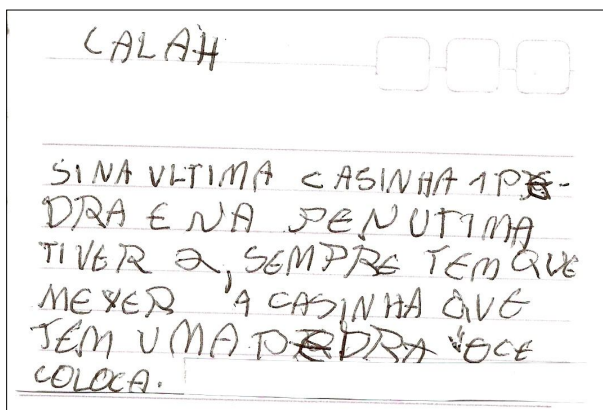 CALAH
SINA ULTIMA CASINHA 1 PE-
DRA E NA PENUTIMA
TIVER 2, SEMPRE TEM QUE
MEXER A CASINHA QUE
TEM UMA PEDRA VOCE
COLOCA.